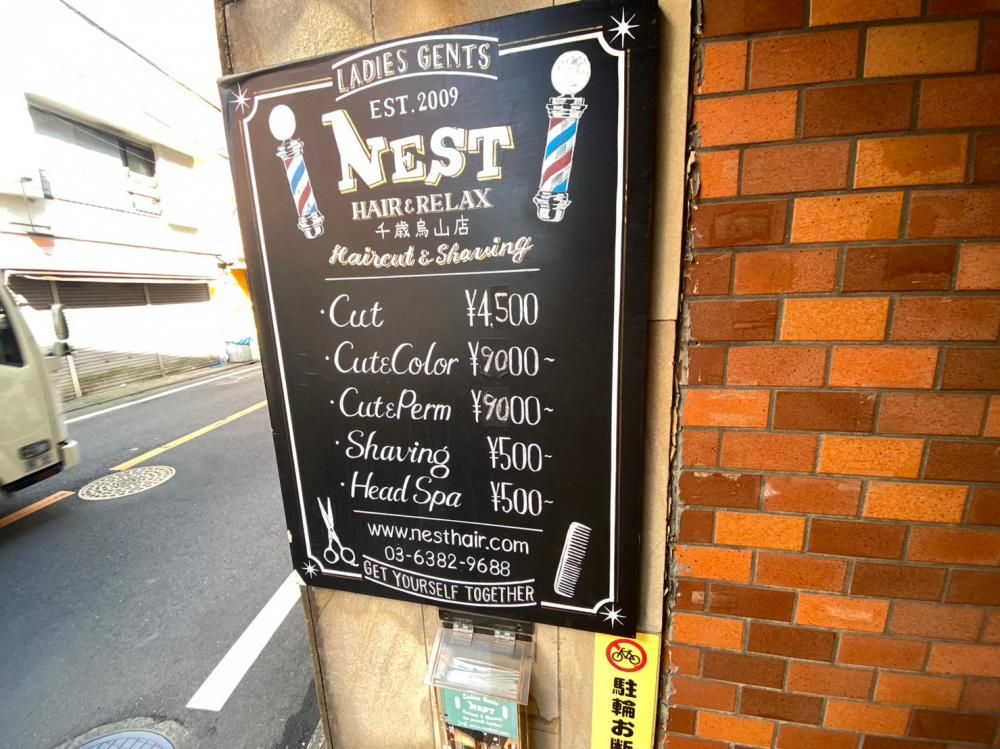 LADIES GENTS
EST. 2009
NEST
HAIR & RELAX
千歳烏山店
Haircut & Shaving
・Cut ¥4,500
・Cut&Color ¥9000~
・Cut&Perm ¥9000~
・Shaving ¥500~
・Head Spa ¥500~
www.nesthair.com
03-6382-9688
GET YOURSELF TOGETHER
Ladies Gents
NEST
駐輪お断